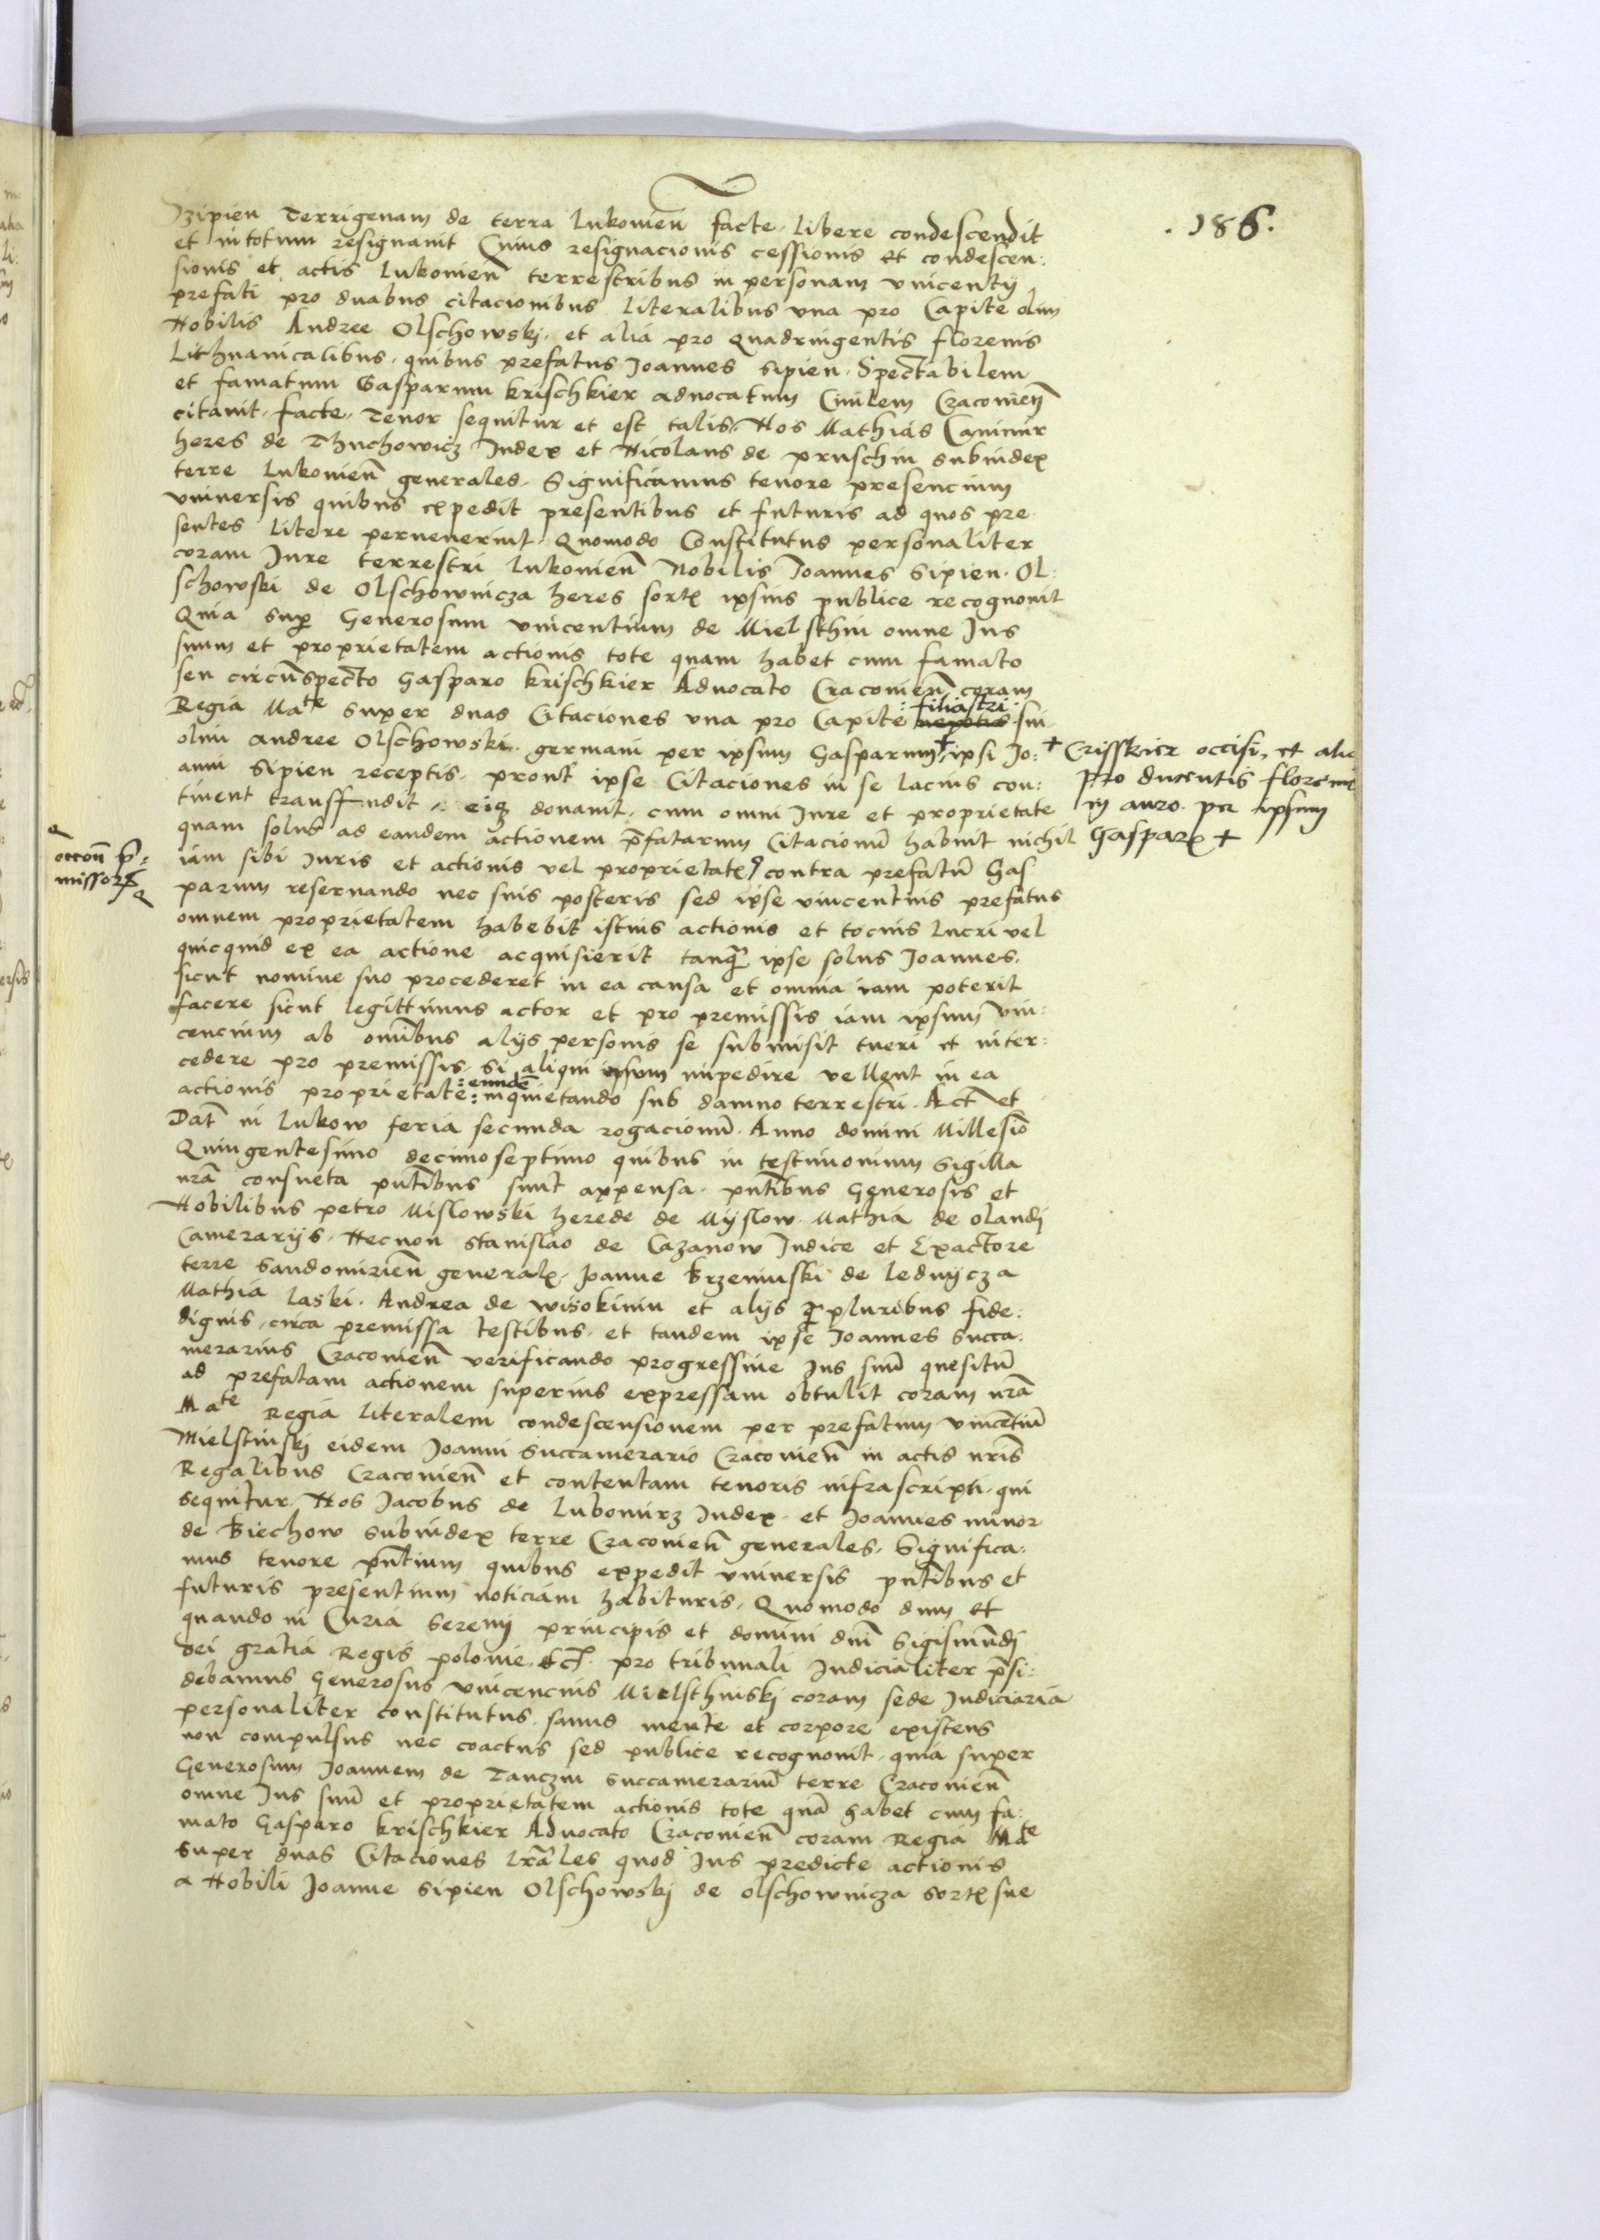 .186.
Szipien Terrigenam de terra lukouien̄ facte. libere condescendit
et in totum resignauit Cuius resignacionis cessionis et condescen:
sionis et actis lukouien̄ terrestribus in personam vincenty
prefati pro duabus citacionibus literalibus vna pro Capite olim
Nobilis Andree Olschowskj. et alia pro quadringentis florenis
Lithuanicalibus. quibus prefatus Joannes sipien. Spectabilem
et famatum Gasparum krischkier aduocatum Ciuilem Cracouien̄
citauit. facte. Tenor sequitur et est talis Nos Mathias
heres de Thuchowicz Judex et Nicolaus de pruschin subiudex
terre lukouien̄ generales. Significamus tenore presencium
vniuersis quibus expedit presentibus et futuris ad quos pre
sentes litere peruenerint. Quomodo Constitutus personaliter
coram Jure terrestri lukouien̄ Nobilis Joannes Sipien. Ol:
schowski de Olschownicza heres sortꝭ ipsius publice recognouit
Quia sup̱ Generosum vincentium de Mielsthin omne Jus
suum et proprietatem actionis tote quam habet cum famato
seu circūspecto Gasparo krischkier Aduocato Cracouien̄ coram
Regia Mate super duas Citaciones vna pro Capite :filiastri: nepotis sui
olim andree Olschowski. germani per ipsum Gasparum + ipsi Jo:
anni Sipien receptis. prout ipse Citaciones in se lacius con:
tinent transffudit eiqꝫ donauit. cum omni Jure et proprietate
quam solus ad eandem actionem p̄fatarum Citacionū habuit nichil
iam sibi iuris et actionis vel proprietatꝭ contra prefatū Gas
parum reseruando nec suis posteris sed ipse vincentius prefatus
omnem proprietatem habebit istius actionis et tocius lucri vel
quicquid ex ea actione acquisierit tanq̄ ipse solus Joannes.
sicut nomine suo procederet in ea causa et omnia iam poterit
facere sicut legittimus actor et pro premissis iam ipsum vin:
cencium ab omibus alys personis se submisit tueri et inter:
cedere pro premissis. si aliqui ipsum impedire vellent in ea
actionis proprietate :eundē: inquietando sub damno terrestri. Act̄ et
Dat̄ in lukow feria secunda rogacionū. Anno domini Millesio
Quingentesimo decimoseptimo quibus in testimonium Sigilla
nrā consueta pn̄tibus sunt appensa. pn̄tibus Generosis et
Nobilibus petro Mislowski herede de Myslow. Mathia de olandj
Camerarys. Necnon stanislao de Cazanow Judice et Exactore
terre Sandomirien̄ generalꝭ. Joanne Brzeninski de lednycza
Mathia laski. Andrea de wisokinin et alys q̄ pluribus fide:
dignis. circa premissa testibus. et tandem ipse Joannes Succa:
merarius Cracouien̄ verificando progressiue Jus suū quesitū
ad prefatam actionem superius expressam obtulit coram nrā
Mate Regia literalem condescensionem per prefatum vincētiū
Mielstinskj eidem Joanni Succamerario Cracouien̄ in actis nrīs
Regalibus Cracouien̄ et contentam tenoris infrascripti. qui
sequitur. Nos Jacobus de lubomirz Judex. et Joannes minor
de Biechow subiudex terre Cracouien̄ generales. Significa:
mus tenore pn̄tium quibus expedit vniuersis pn̄tibus et
futuris presentium noticiam habituris. Quomodo dum et
quando in Curia Serenj principis et domini dnī Sigismūdj
dei gratia Regis polonie. &c̄. pro tribunali Judicialiter p̄si:
debamus Generosus vincencius Mielschinskj coram sede Judiciaria
personaliter constitutus. sanus mente et corpore existens
non compulsus nec coactus sed publice recognouit. quia super
Generosum Joannem de Tanczin Succamerariū terre Cracouien̄
omne Jus suū et proprietatem actionis tote quā habet cum fa:
mato Gasparo krischkier Aduocato Cracouien̄ coram Regia Mate
Super duas Citaciones lrāles quod Jus predicte actionis
a Nobili Joanne Sipien Olschowskj de olschownicza sortꝭ sue
+ Crisskier occisi, et alia
pro ducentis florenis
in auro. per ipsum
Gasparꝭ +
occon̄ p̄:
missorꝝ